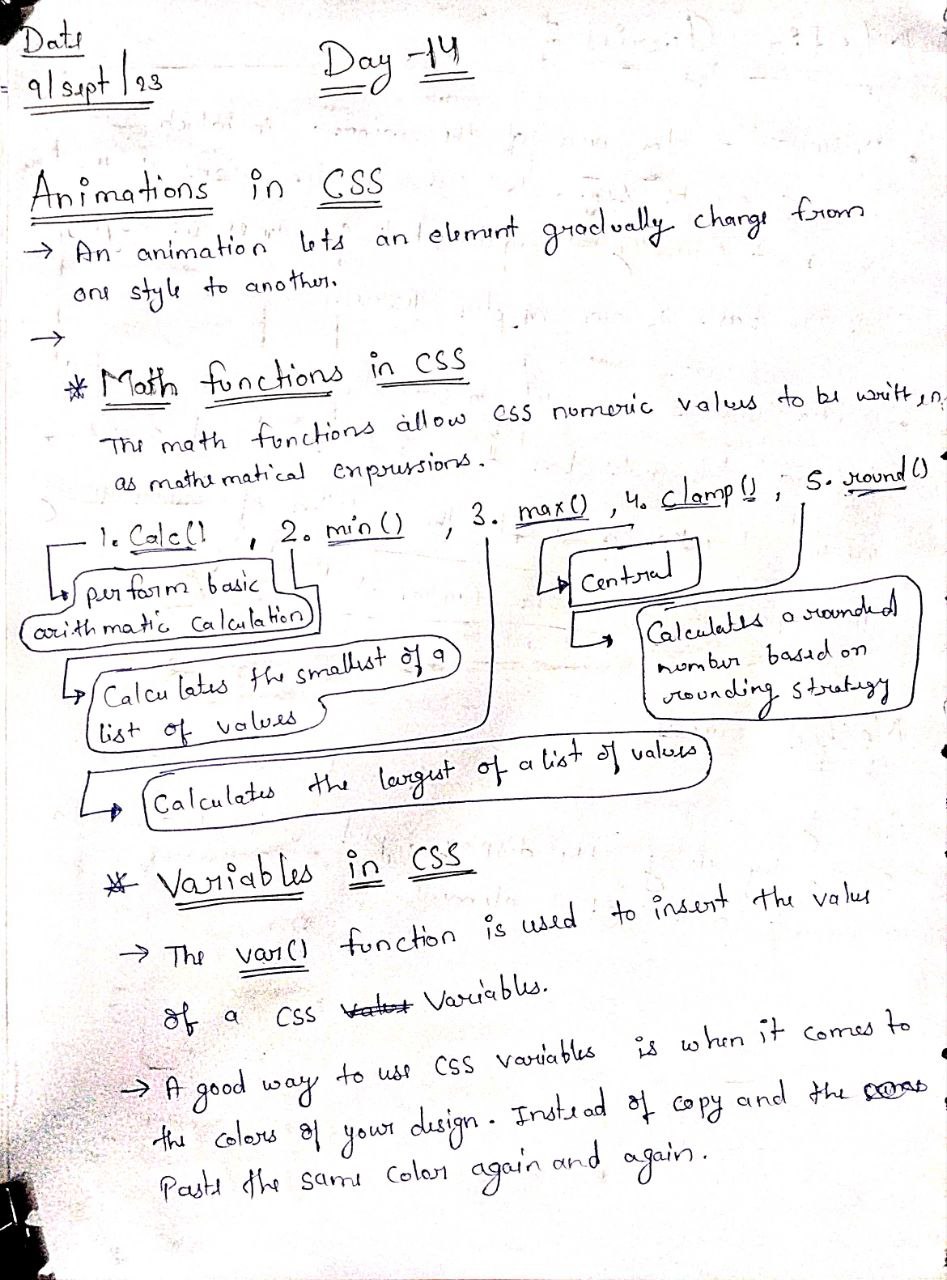 Date
9/sept/23
Day -14
Animations in CSS
→ An animation lets an element gradually change from
one style to another.
→
* Math functions in CSS
The math functions allow CSS numeric values to be written
as mathematical enpressions.
1. Calc() , 2. min() , 3. max() , 4. clamp() , 5. round()
perform basic
arithmatic calculation
Central
Calculates a rounded
number based on
rounding strategy
Calculates the smallest of a
list of values
Calculates the largest of a list of values
* Variables in CSS
→ The var() function is used to insert the value
of a CSS Variables.
→ A good way to use CSS variables is when it comes to
the colors of your design. Instead of copy and the
Paste the same color again and again.